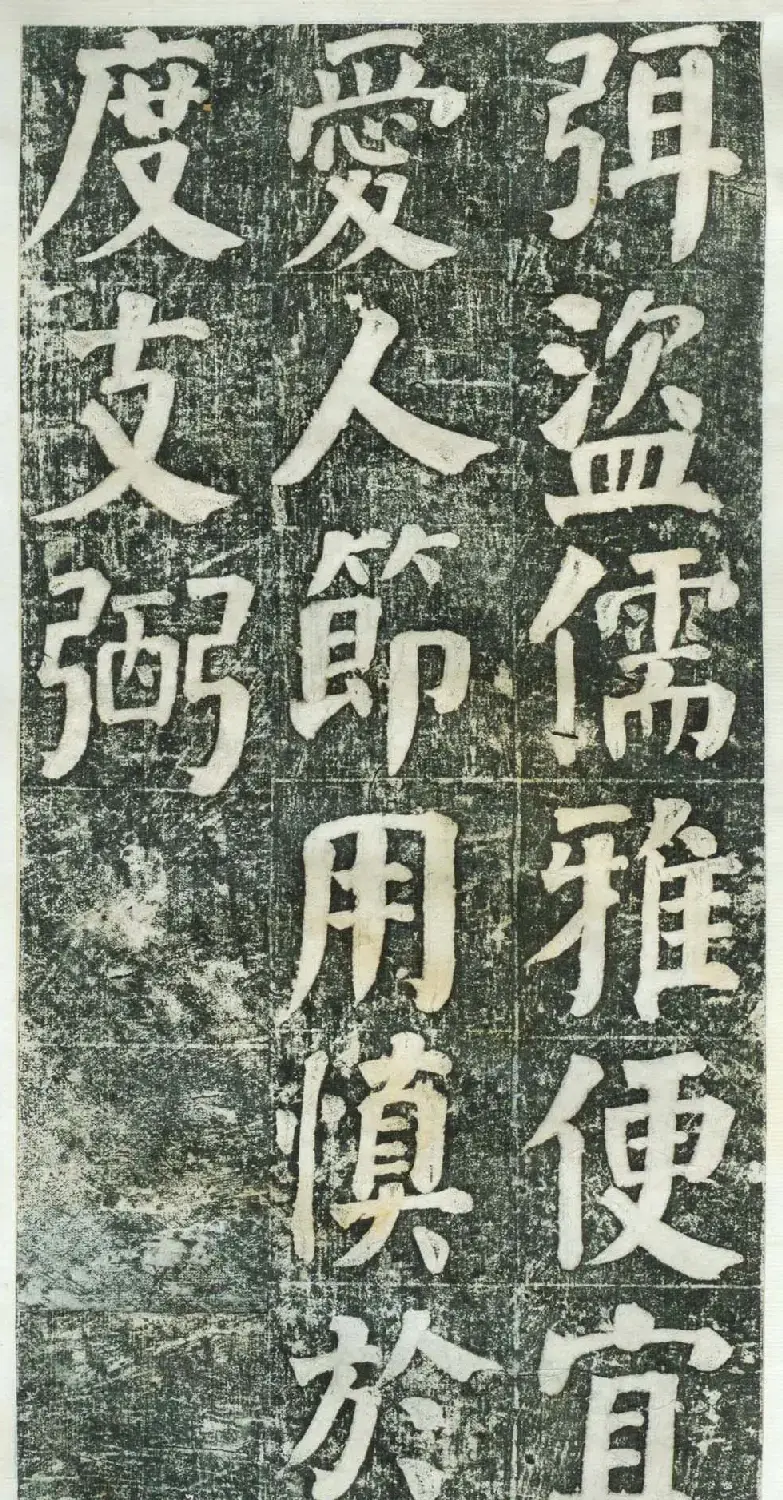 弭盜儒雅便宜
愛人節用慎於
度支弼